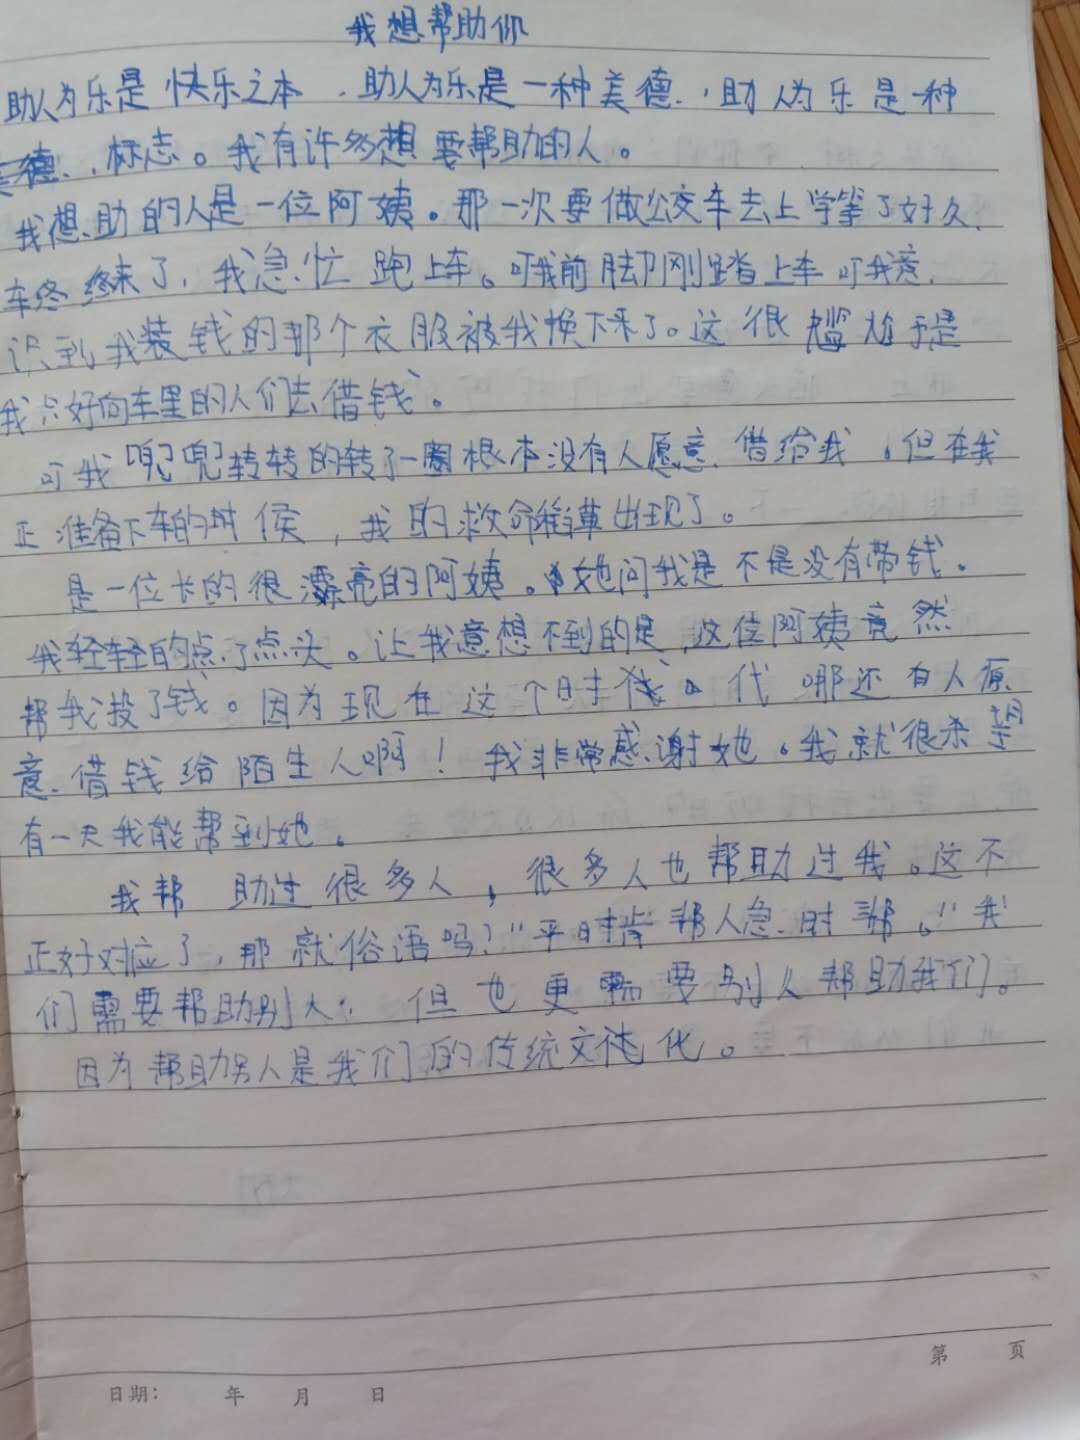 我想帮助你
助人为乐是快乐之本，助人为乐是一种美德，助人为乐是一种
美德，标志。我有许多想要帮助的人。
我想助的人是一位阿姨。那一次要做公交车去上学等了好久，
车终终来了，我急忙跑上车。可我前脚刚踏上车可我意
识到我装钱的那个衣服被我换下来了。这很尴尬于是
我只好向车里的人们去借钱。
可我兜兜转转的转了一圈根本没有人愿意借给我，但在我
正准备下车的时候，我的救命稻草出现了。
是一位长的很漂亮的阿姨。她问我是不是没有带钱。
我轻轻的点了点头。让我意想不到的是，这位阿姨竟然
帮我投了钱。因为现在这个时代哪还有人原
意借钱给陌生人啊！我非常感谢她。我就很希望
有一天我能帮到她。
我帮助过很多人，很多人也帮助过我。这不
正好对应了，那就俗语吗？“平时肯帮人急时帮。”我
们需要帮助别人，但也更需要别人帮助我们。
因为帮助别人是我们的传统文化。
第 页
日期： 年 月 日